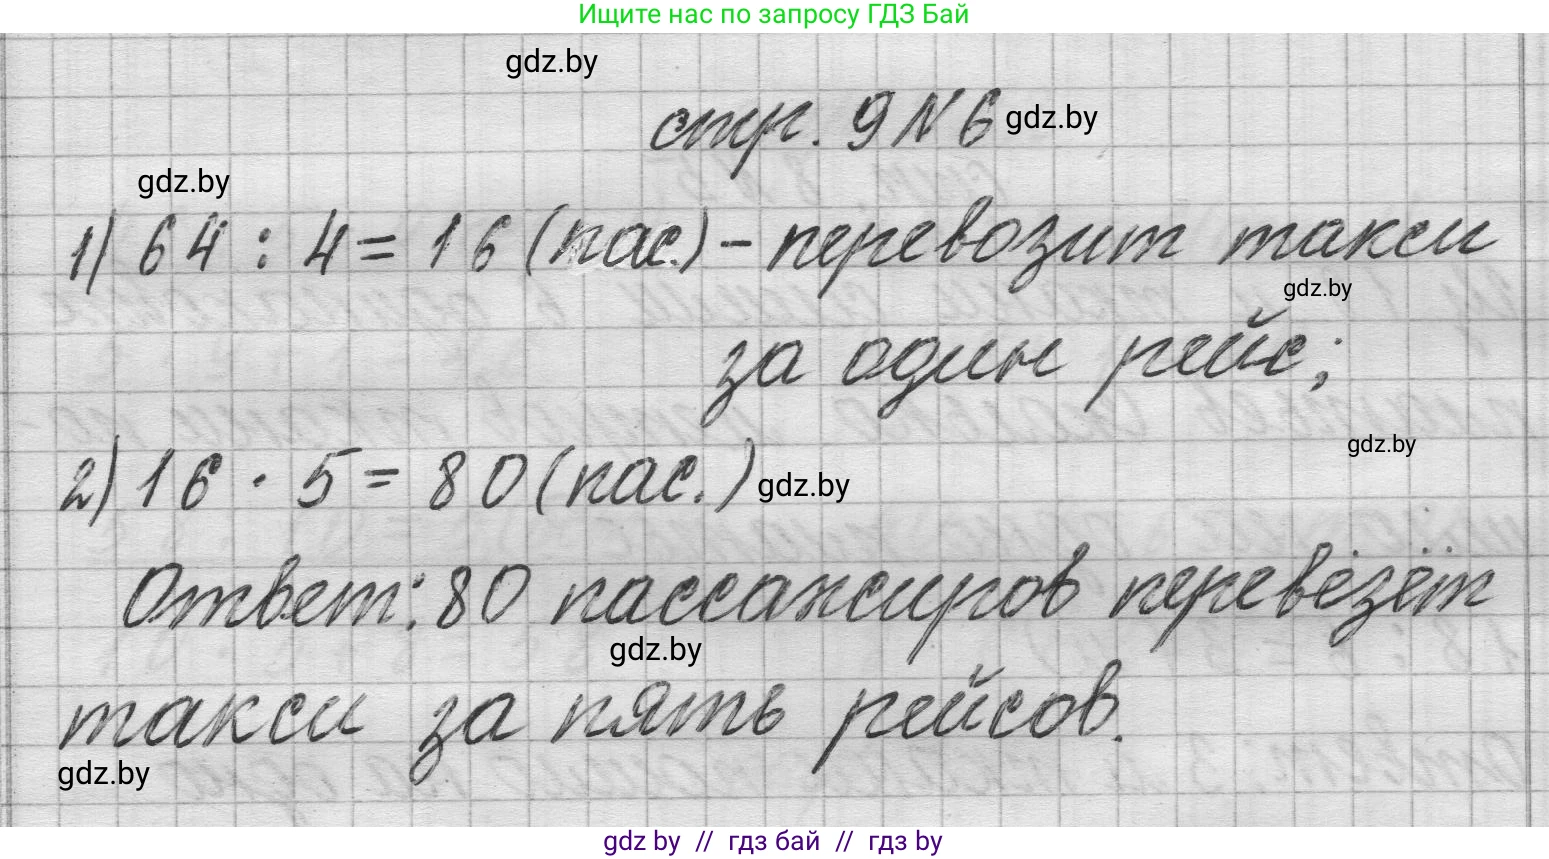 Ищите нас по запросу ГДЗ Бай
gdz.by
стр. 9 N 6 gdz.by
gdz.by
1) 64 : 4 = 16 (пас.) – перевозит такси
gdz.by
за один рейс;
gdz.by
2) 16 · 5 = 80 (пас.) gdz.by
Ответ: 80 пассажиров перевезёт
gdz.by
такси за пять рейсов.
gdz.by
gdz by // гдз бай // гдз by